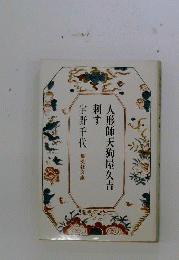 人形師天狗屋久吉
刺す
宇野千代
集英社文庫